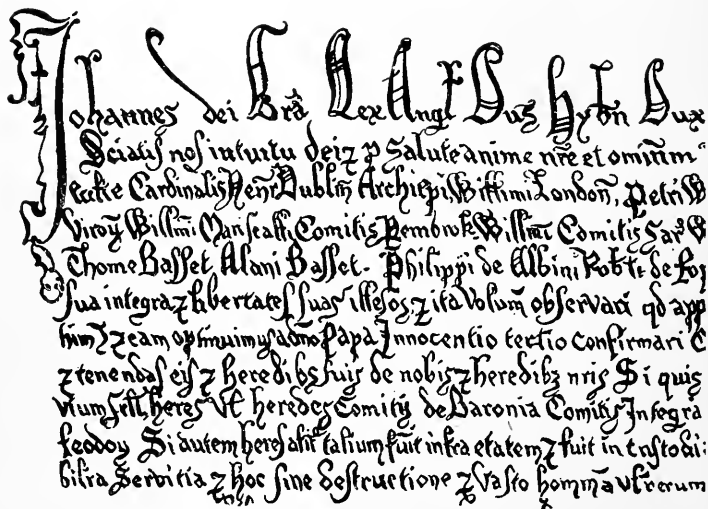 Johannes dei Gra Rex Angl Dns Hybn Dux
Sciatis nos intuitu dei z p salute anime nre et omnium
eccłie Cardinalis Henr Dublin Archiepi Willimi London, Petri W
Viroy Willmi Marscalli Comitis Pembroke Willmi Comitis Sar W
Thome Basset Alani Basset. Philippi de Albini Robti de Rop
sua integra z libertates suas illesos, z ita volum observari qd app
z eam optinuimus a dno Papa Innocentio tertio confirmari C
z tenendas eis z heredibs suis de nobis z heredibz nris Si quis
heres vł heredes Comitis de Baronia Comitis Integra
feodoy Si autem heres alic talium fuit infra etatem z fuit in custodi:
servitia z hoc sine destructione z vasto hominu vł rerum